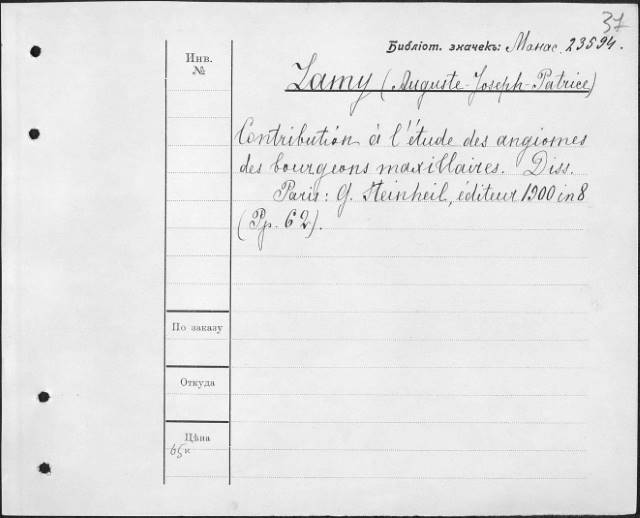 37
Библіот. значекъ: Манас. 23594.
Инв.
№
Lamy (Auguste-Joseph-Patrice)
Contribution à l'étude des angiomes
des bourgeons maxillaires. Diss.
Paris: G. Steinheil, éditeur 1900 in 8
(Pp. 62).
По заказу
Откуда
Цѣна
65 к